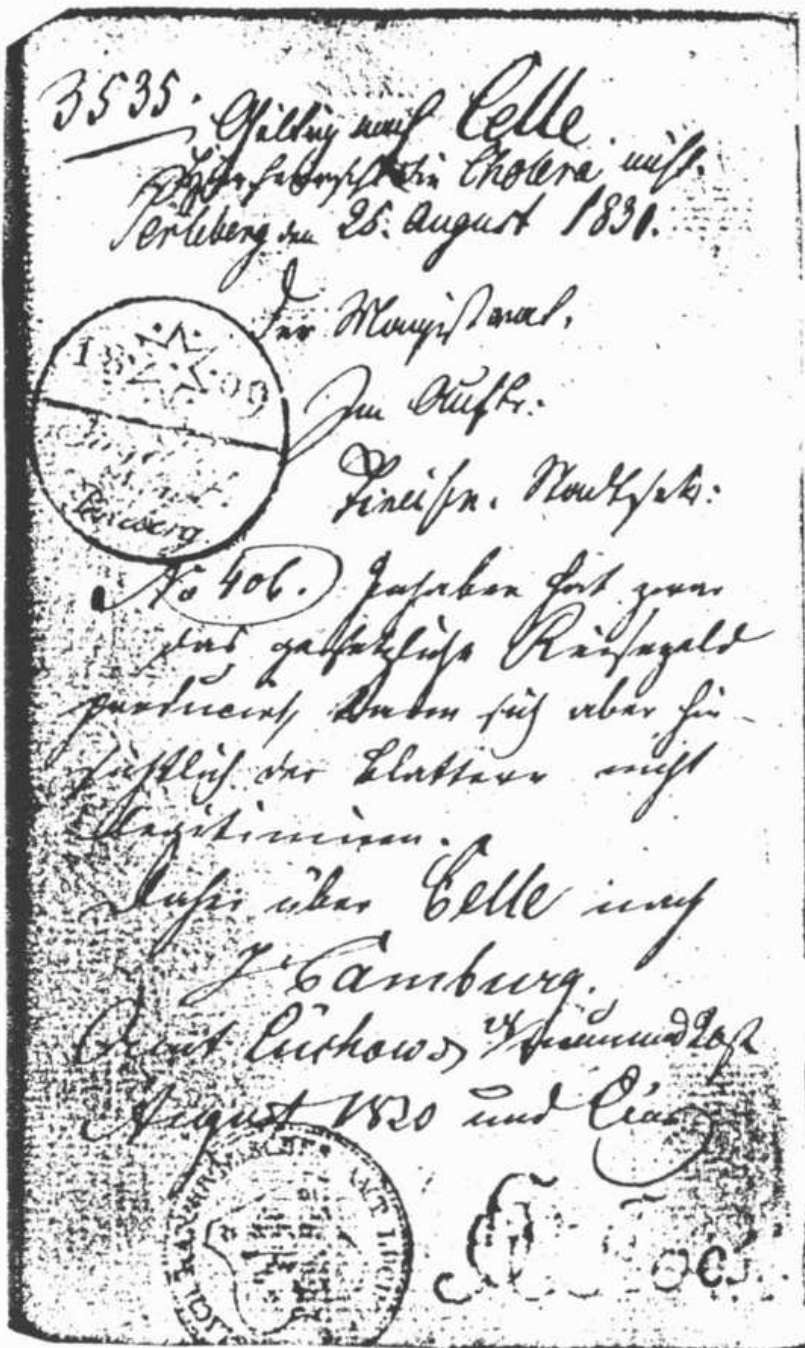 3535.
Gültig nach Celle.
Hier herrscht die Cholera nicht.
Perleberg den 26. August 1831.
Der Magistrat.
Im Auftr:
Stadtsek:
18 09
Perleberg
No 406. Inhaber hat zwar
das gesetzliche Reisegeld
producirt, kann sich aber hin-
sichtlich der Blattern nicht
legitimiren.
Daher über Celle nach
Hamburg.
Amt Lüchow d
August 1830 und Ein
AMT LÜCH